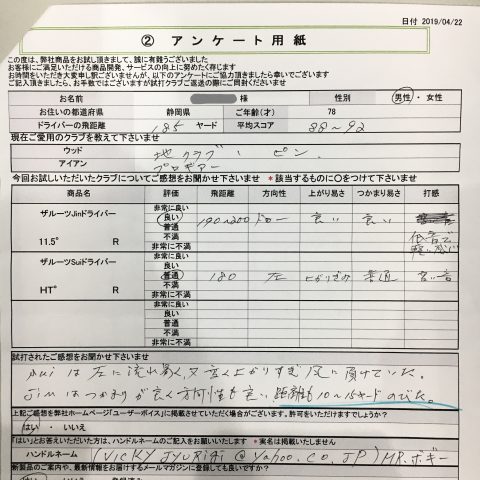 日付 2019/04/22
② アンケート用紙
この度は、弊社商品をお試し頂きまして、誠に有難うございました
お客様にご満足いただける商品開発、サービスの向上に努めたく存じます
お時間をいただき大変申し訳ございませんが、以下のアンケートにご協力頂きましたら幸いでございます
ご記入頂きましたら、お手数ではございますが試打クラブご返送の際にご同封くださいませ
お名前 様 性別 男性・女性
お住いの都道府県 静岡県 ご年齢(才) 78
ドライバーの飛距離 185 ヤード 平均スコア 88~92
現在ご愛用のクラブを教えて下さいませ
ウッド 地クラブ、ピン、
アイアン プロギアー
今回お試しいただいたクラブについてご感想をお聞かせ下さいませ *該当するものに〇をつけて下さいませ
商品名 評価 飛距離 方向性 上がり易さ つかまり易さ 打感
ザルーツJinドライバー
11.5° R
非常に良い
良い
普通
不満
非常に不満
190~200 ドロー 良い 良い 低音で
ザルーツSuiドライバー
HT° R
非常に良い
良い
普通
不満
非常に不満
180 左 上がりぎみ 普通
非常に良い
良い
普通
不満
非常に不満
試打されたご感想をお聞かせ下さいませ
Suiは左に流れ易く、又高く上がりすぎ風に負けていた。
Jinはつかまりが良く方向性も良い距離も10~15ヤードのびた。
上記ご感想を弊社ホームページ「ユーザーボイス」に掲載させていただく場合がございます。許可をいただけますでしょうか?
はい ・ いいえ
「はい」とお答えいただいた方は、ハンドルネームのご記入をお願いいたします *実名は掲載いたしません
ハンドルネーム (VICKYJYURIAI@yahoo.co.JP) MR.ボギー
新製品のご案内や、最新情報をお届けするメールマガジンに登録しても良いですか?